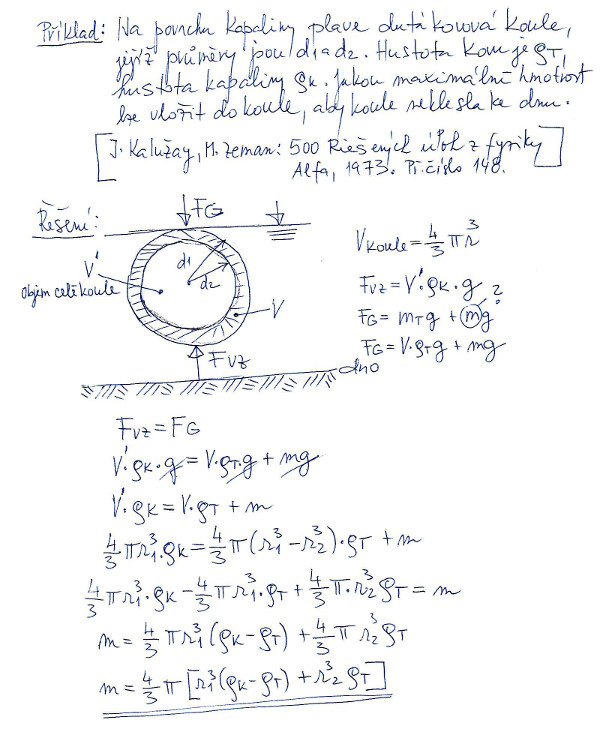 Příklad: Na povrchu kapaliny plave dutá kovová koule,
jejíž průměry jsou d1 a d2. Hustota kovu je ρT,
hustota kapaliny ρK. Jakou maximální hmotnost
lze vložit do koule, aby koule neklesla ke dnu.
[J. Kalužay, M. Zeman: 500 Riešených úloh z fyziky
Alfa, 1973. Př. číslo 148.]
Řešení:
FG
V'
objem celé koule
d1
d2
V
FVZ
dno
Vkoule = 4/3 π r³
FVZ = V'·ρK·g
FG = mT g + mg ?
FG = V·ρT g + mg
FVZ = FG
V'·ρK·g = V·ρT·g + mg
V'·ρK = V·ρT + m
4/3 π r1³·ρK = 4/3 π (r1³ − r2³)·ρT + m
4/3 π r1³·ρK − 4/3 π r1³·ρT + 4/3 π·r2³ ρT = m
m = 4/3 π r1³ (ρK − ρT) + 4/3 π r2³ ρT
m = 4/3 π [r1³ (ρK − ρT) + r2³ ρT]